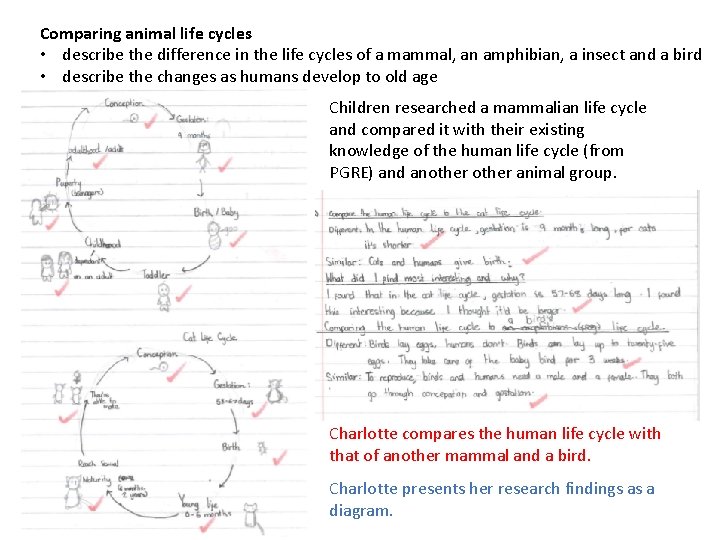 Comparing animal life cycles
• describe the difference in the life cycles of a mammal, an amphibian, a insect and a bird
• describe the changes as humans develop to old age
Children researched a mammalian life cycle
and compared it with their existing
knowledge of the human life cycle (from
PGRE) and another other animal group.
Conception
Gestation:
9 months
Birth / Baby
Toddler
Childhood
dependant
on an adult
Puberty
(teenagers)
adulthood /adult
Compare the human life cycle to the cat life cycle.
Different: In the human life cycle, gestation is 9 months long, for cats
it's shorter
Similar: Cats and humans give birth.
What did I find most interesting and why?
I found that in the cat life cycle, gestation is 57-68 days long. I found
this interesting because I thought it'd be longer.
Comparing the human life cycle to a birds life cycle.
Different: Birds lay eggs, humans don't. Birds can lay up to twenty-five
eggs. They take care of the baby bird for 3 weeks.
Similar: To reproduce, birds and humans need a male and a female. They both
go through conception and gestation.
Cat Life Cycle
Conception
Gestation:
days
Birth
Young life
0-6 months
Reach Sexual
Maturity
They're
able to
mate
Charlotte compares the human life cycle with
that of another mammal and a bird.
Charlotte presents her research findings as a
diagram.